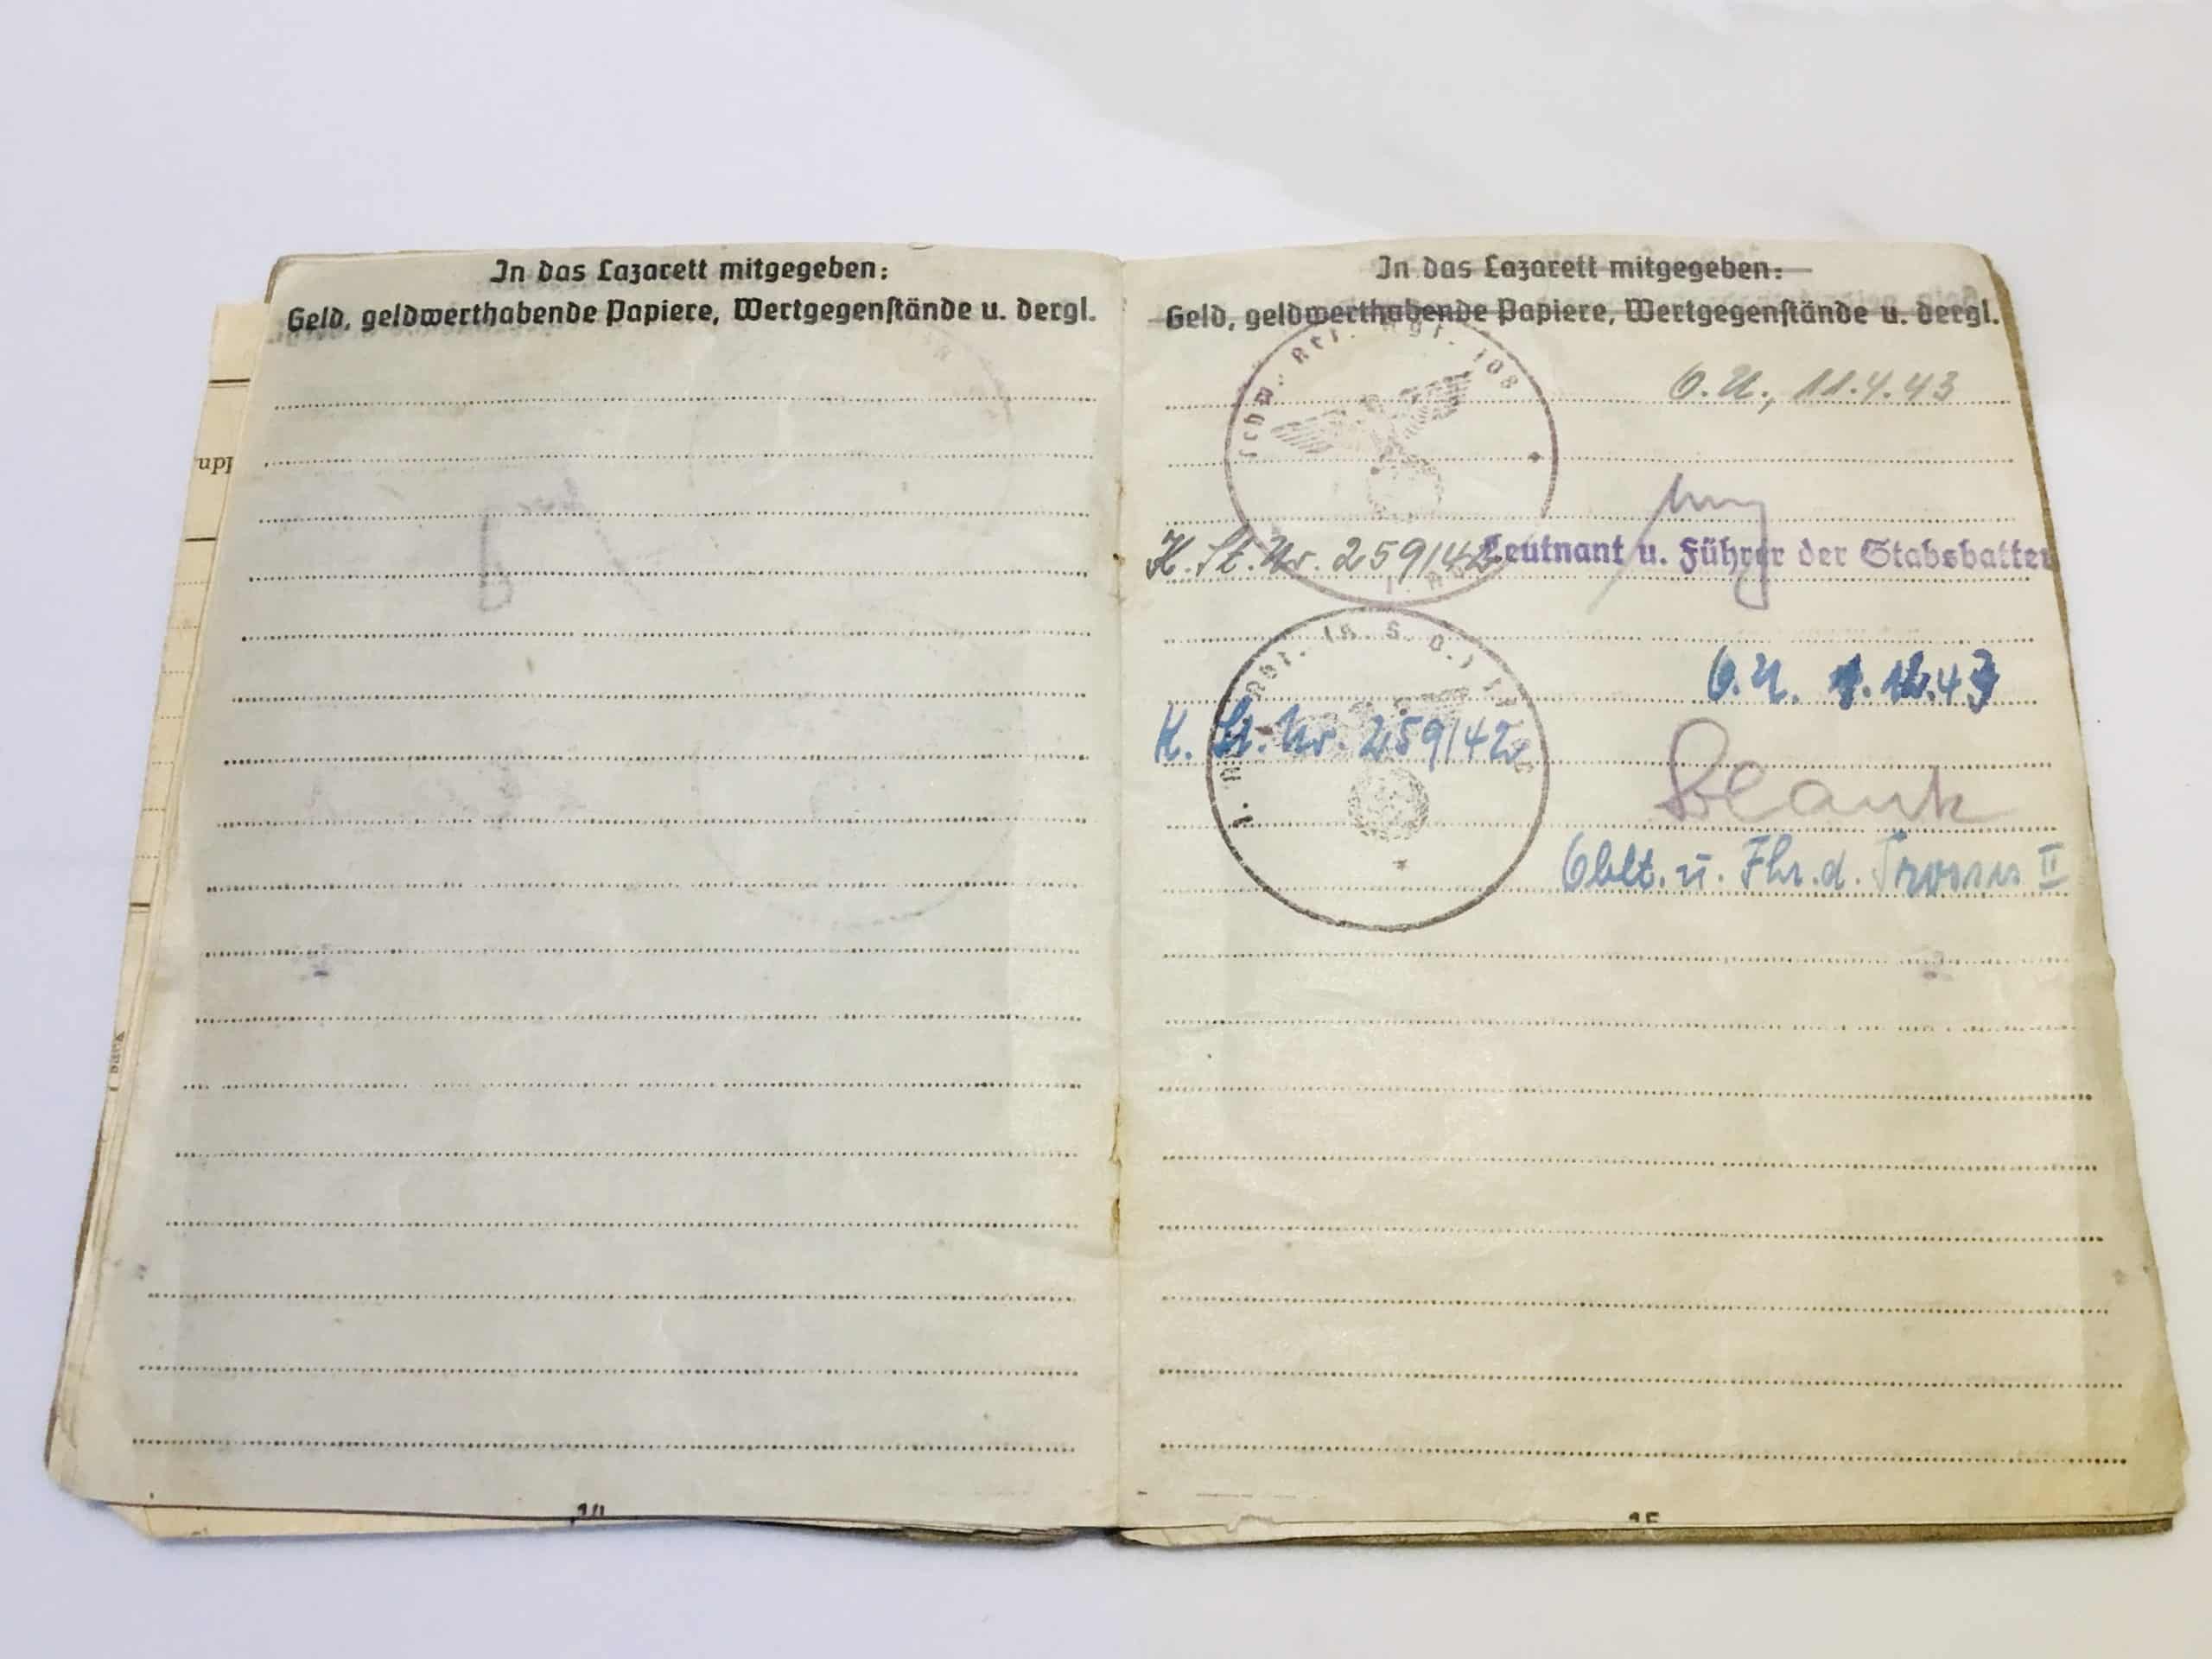 In das Lazarett mitgegeben:
Geld, geldwerthabende Papiere, Wertgegenstände u. dergl.
14
In das Lazarett mitgegeben:
Geld, geldwerthabende Papiere, Wertgegenstände u. dergl.
schw. Art. Rgt. 108
O.U., 11.4.43
K. St. Nr. 259/42
Leutnant u. Führer der Stabsbatter
O.U. 1.12.43
K. St. Nr. 259/42
Blank
Oblt. u. Fhr. d. Trosses II
15